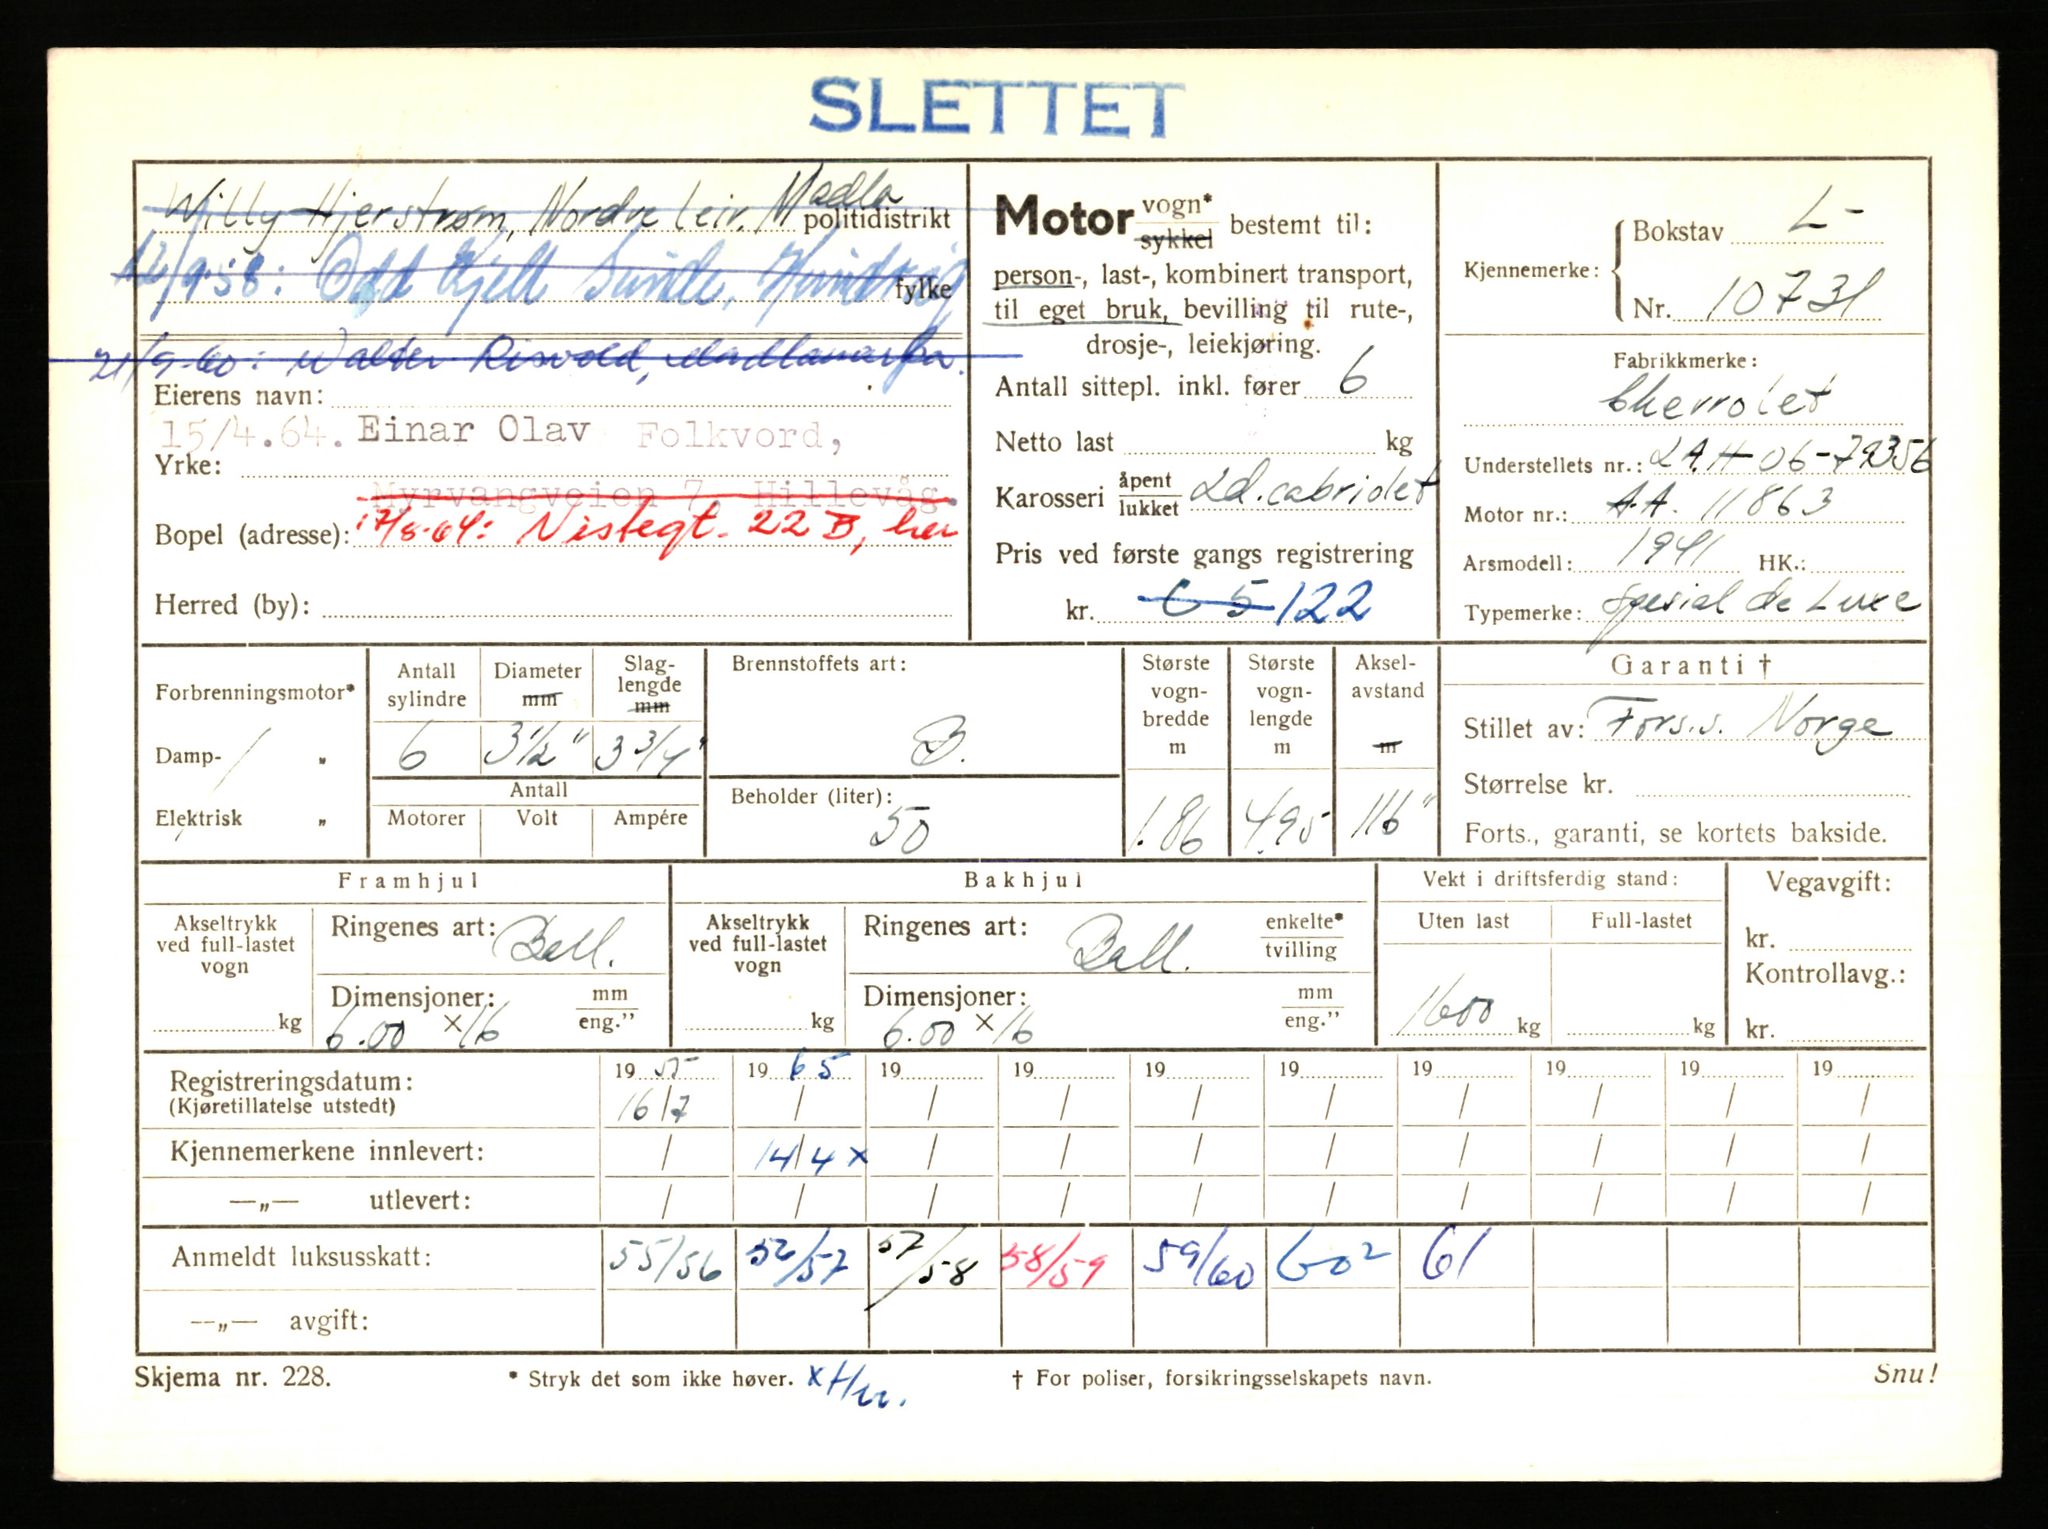 SLETTET
Willy Hjerstrøm, Nordre leir, Madla
politidistrikt
12/9-58: Odd Kjell Sunde, Hundvåg
fylke
21/9-60: Walter Risvold, Madlamarka.
Eierens navn:
15/4.64. Einar Olav Folkvord,
Yrke:
Myrvangveien 7, Hillevåg.
Bopel (adresse): 17/8-64: Nistegt. 22 B, her
Herred (by):
Motor vogn* sykkel bestemt til:
person-, last-, kombinert transport,
til eget bruk, bevilling til rute-,
drosje-, leiekjøring.
Antall sittepl. inkl. fører 6
Netto last kg
Karosseri åpent lukket 2d. cabriolet
Pris ved første gangs registrering
kr. 122
Kjennemerke: Bokstav L-
Nr. 10731
Fabrikkmerke:
Chevrolet
Understellets nr.: 2AH-06-72356
Motor nr.: AA. 11863
Arsmodell: 1941 HK.:
Typemerke: Spesial de Luxe
Forbrenningsmotor*
Damp- "
Elektrisk "
Antall sylindre
Diameter mm
Slag-lengde mm
6 3 1/2" 3 3/4"
Antall
Motorer Volt Ampére
Brennstoffets art:
B.
Beholder (liter):
50
Største vogn-bredde m
1.86
Største vogn-lengde m
4.95
Aksel-avstand m
116"
Garanti †
Stillet av: Fors.s. Norge
Størrelse kr.
Forts., garanti, se kortets bakside.
Framhjul
Akseltrykk ved full-lastet vogn
kg
Ringenes art: Ball.
Dimensjoner: mm eng."
6.00 x 16
Bakhjul
Akseltrykk ved full-lastet vogn
kg
Ringenes art: Ball. enkelte* tvilling
Dimensjoner: mm eng."
6.00 x 16
Vekt i driftsferdig stand:
Uten last Full-lastet
1600 kg kg
Vegavgift:
kr.
Kontrollavg.:
kr.
Registreringsdatum: 19 55 19 65 19 19 19 19 19 19 19 19
(Kjøretillatelse utstedt) 16/7 / / / / / / / / /
Kjennemerkene innlevert: / 14/4 x / / / / / / / /
—„— utlevert: / / / / / / / / / /
Anmeldt luksusskatt: 55/56 56/57 57/58 58/59 59/60 60² 61
—„— avgift:
Skjema nr. 228.
* Stryk det som ikke høver. x Her.
† For poliser, forsikringsselskapets navn.
Snu!